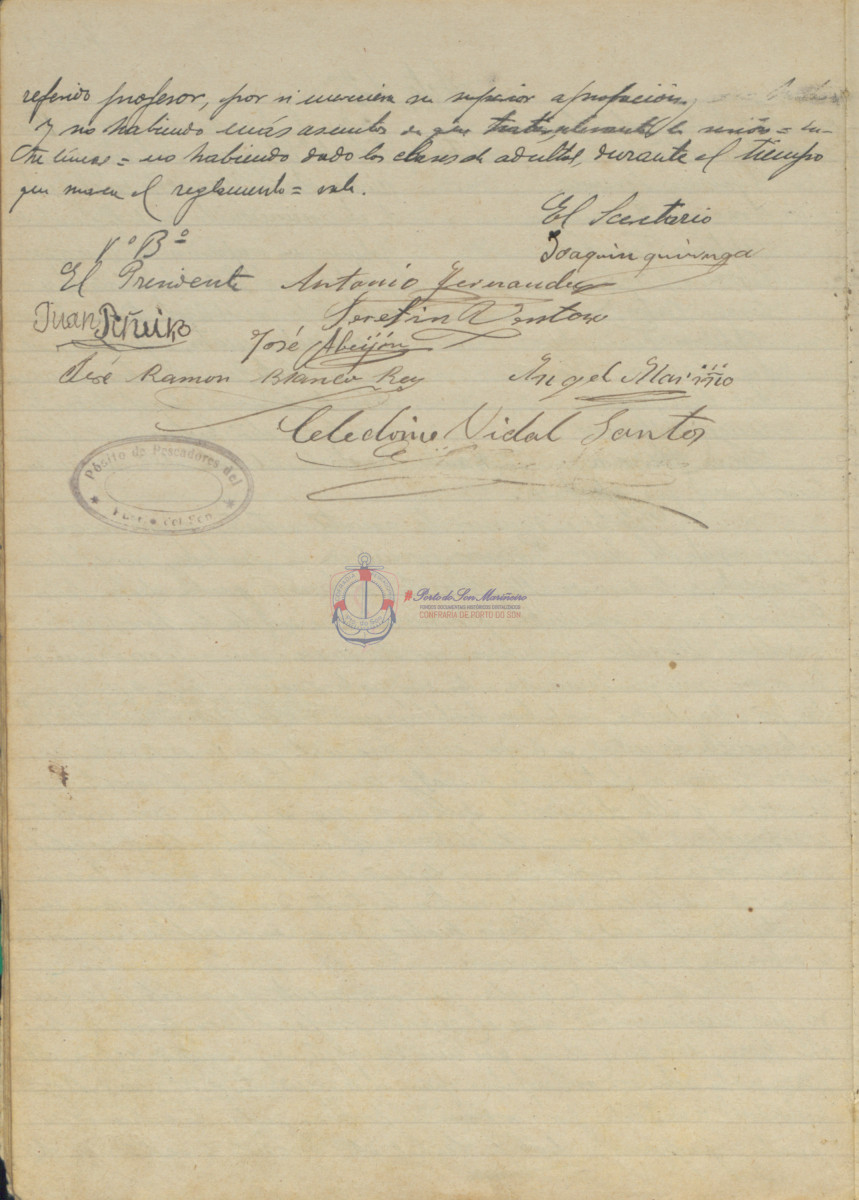 referido profesor, por si mereciera su superior aprobación,
Y no habiendo más asuntos de que tratar, levantó la sesión = en-
tre líneas = no habiendo dado las clases de adultos, durante el tiempo
que marca el reglamento = vale.
El Secretario
Joaquin quiruga
Vº Bº
El Presidente Antonio Fernandez
Juan
Serefin Ventoso
José Abeijón
José Ramon Blanco Rey Angel Mariño
Celedonio Vidal Santos
Pósito de Pescadores del
del Son
Porto do Son Mariñeiro
FONDOS DOCUMENTAIS HISTÓRICOS DIXITALIZADOS
CONFRARÍA DE PORTO DO SON